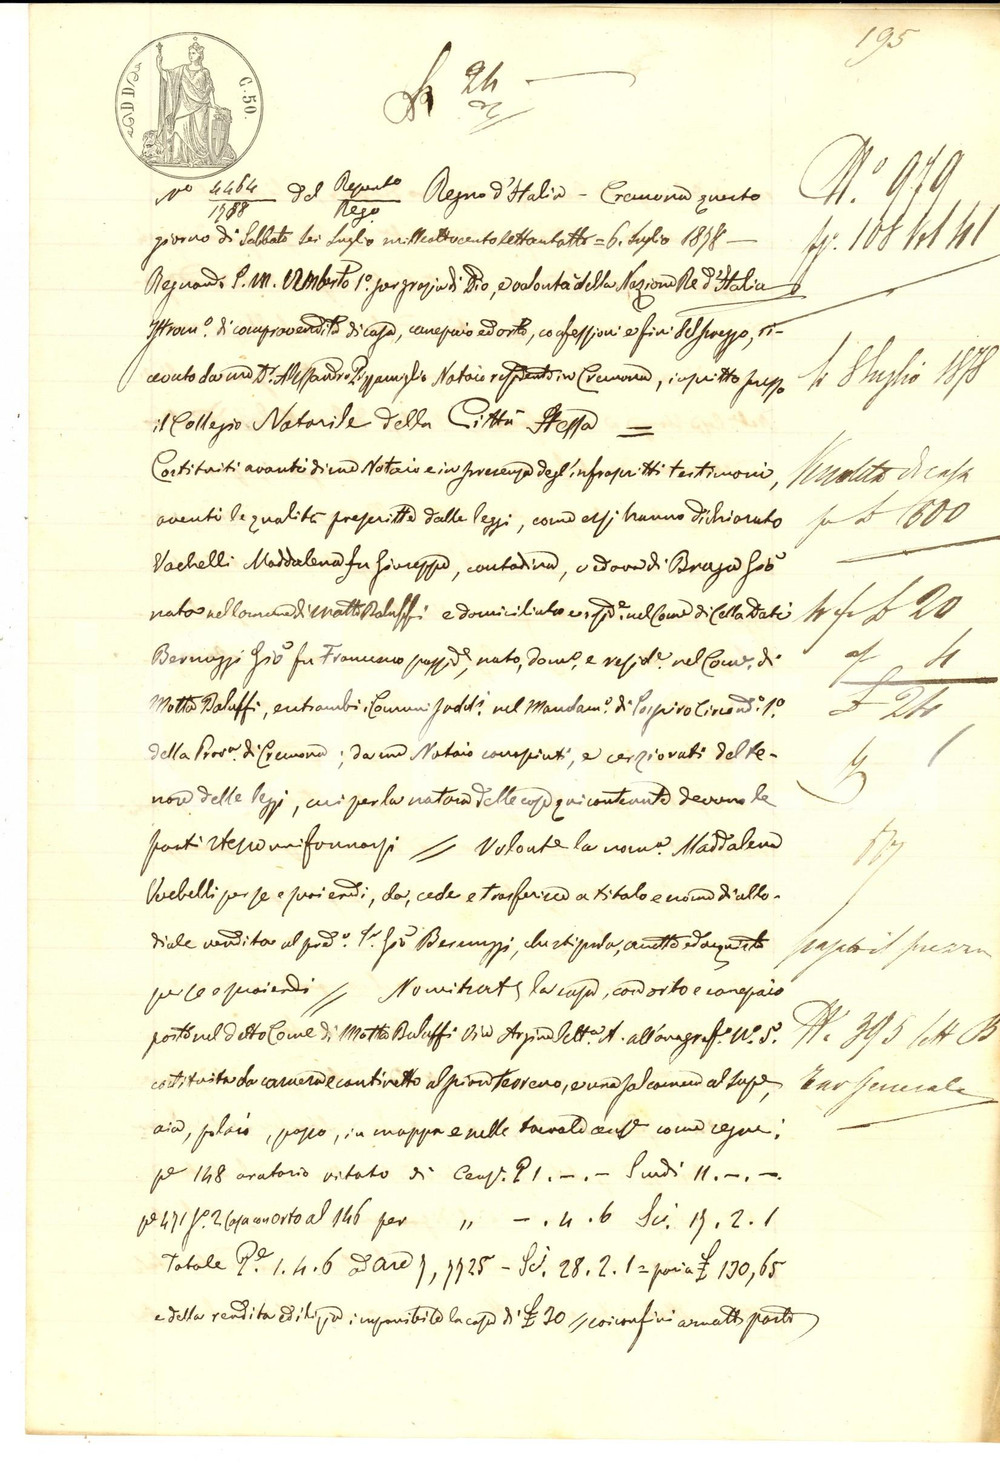 195
C. 50.
24
N° 4464 / 1788 del Reperto / Rego Regno d'Italia - Cremona questo
N.° 979
giorno di Sabbato sei Luglio mille ottocento settantotto = 6. Luglio 1878 —
fg. 108 vol 41
Regnando S. M. Umberto 1.° per grazia di Dio, e volontà della Nazione Re d'Italia
Istrom.° di compravendita di casa, canepaio ed orto, confessioni e fini del prezzo, ri-
cevuto da me D.r Alessandro Pizzamiglio Notaio residente in Cremona, inscritto presso
li 8 luglio 1878
il Collegio Notarile della Città Stessa =
Costituiti avanti di me Notaio e in presenza degl'infrascritti testimoni,
Vendita di casa
aventi le qualità prescritte dalle leggi, come essi hanno dichiarato
per £ 1600
Vachelli Maddalena fu Giuseppe, contadina, vedova di Braga Gio.
nata nel Comune di Motta Baluffi e domiciliata e resid.e nel Com.e di Cella Dati
£ 20
Bernuzzi Gio. fu Francesco possid.e, nato, dom.o, e resid.e nel Com.e di
4
Motta Baluffi, entrambi i Comuni sudd.i nel Mandam.o di Pescarolo Circond.o 1.o
£ 24
della Prov.a di Cremona; da me Notaio conosciuti, e cerziorati del te-
nore delle leggi, cui per la natura delle cose qui contenute devono le
parti stesse uniformarsi // Volente la nom.a Maddalena
Vachelli per se e suoi eredi, da, cede e trasferisce a titolo e nome di allo-
diale vendita al pred.o S.r Gio. Bernuzzi, che stipula, accetta ed acquista
per se e suoi eredi // Nominat.e la casa, con orto e canepaio
posto nel detto Com.e di Motta Baluffi Via Argine Lett.a A. all'anagraf.o N.o 5.o
N. 395 lett B
costituita da camera e cantinetto al pian terreno, e una sol camera al supe-
Tav Generale
aia, solaio, pozzo, in mappa e nelle tavole cens.e come segue:
pe 148 aratorio vitato di Cens. P 1. -. - Scudi 11. -. -.
pe 471 s.o 2 Casa con orto al 146 per „ - . 4. 6 Sc. 17. 2. 1
Totale P.e 1. 4. 6 ad are 7,7725 - Sc. 28. 2. 1 = paria £ 130,65
e della rendita edilizia imponibile la casa di £ 30 // coi confini a mattina parte